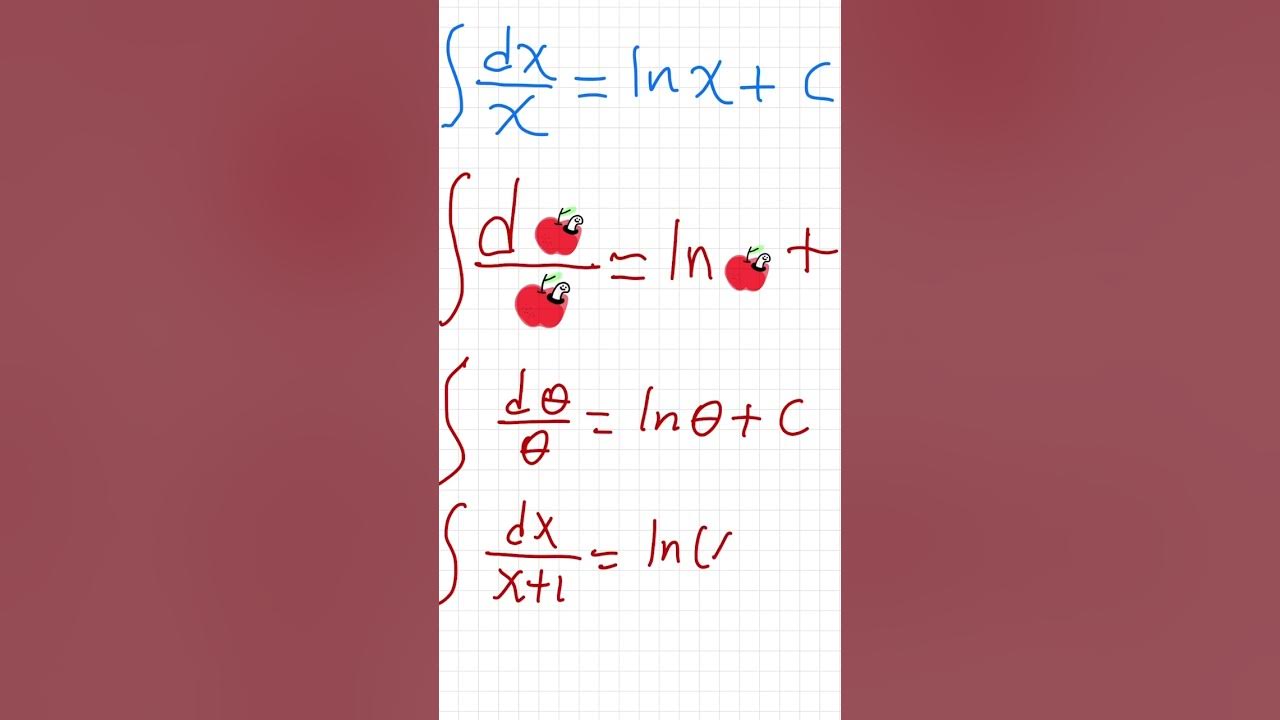 ∫ dx/x = ln x + C
∫ d🍎/🍎 = ln 🍎 +
∫ dθ/θ = ln θ + C
∫ dx/x+1 = ln(